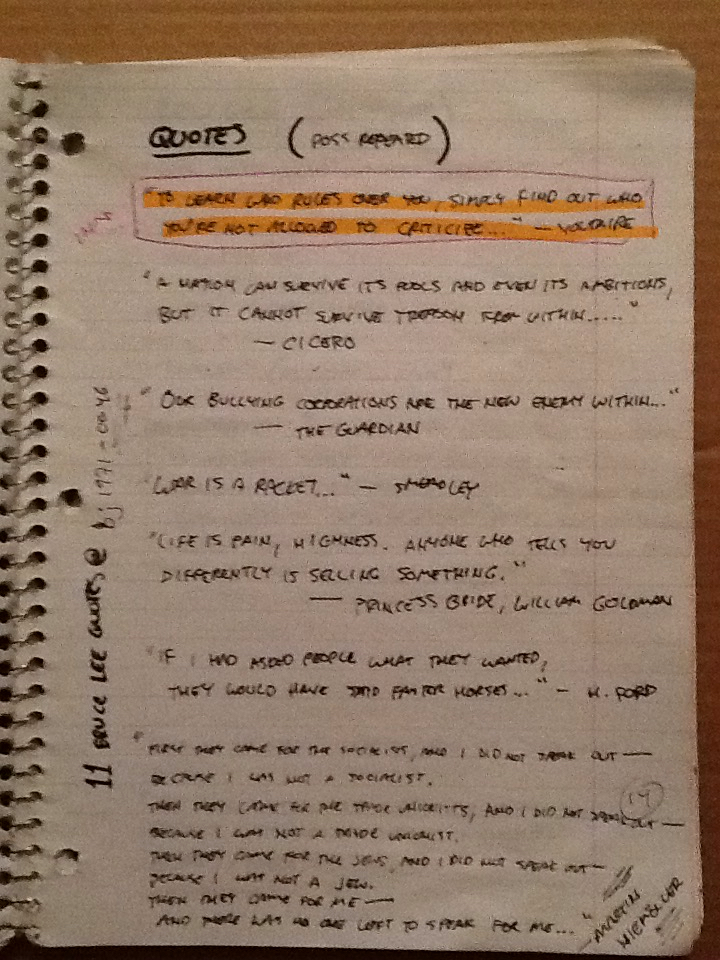 QUOTES (POSS REPEATED)
"TO LEARN WHO RULES OVER YOU, SIMPLY FIND OUT WHO
YOU'RE NOT ALLOWED TO CRITICIZE..." — VOLTAIRE
"A NATION CAN SURVIVE ITS FOOLS AND EVEN ITS AMBITIONS,
BUT IT CANNOT SURVIVE TREASON FROM WITHIN....."
— CICERO
"OUR BULLYING CORPORATIONS ARE THE NEW ENEMY WITHIN..."
— THE GUARDIAN
"WAR IS A RACKET..." — SMEADLEY
"LIFE IS PAIN, HIGHNESS. ANYONE WHO TELLS YOU
DIFFERENTLY IS SELLING SOMETHING."
— PRINCESS BRIDE, WILLIAM GOLDMAN
"IF I HAD ASKED PEOPLE WHAT THEY WANTED,
THEY WOULD HAVE SAID FASTER HORSES..." — H. FORD
"FIRST THEY CAME FOR THE SOCIALISTS, AND I DID NOT SPEAK OUT —
BECAUSE I WAS NOT A SOCIALIST.
THEN THEY CAME FOR THE TRADE UNIONISTS, AND I DID NOT SPEAK OUT —
BECAUSE I WAS NOT A TRADE UNIONIST.
THEN THEY CAME FOR THE JEWS, AND I DID NOT SPEAK OUT —
BECAUSE I WAS NOT A JEW.
THEN THEY CAME FOR ME —
AND THERE WAS NO ONE LEFT TO SPEAK FOR ME..."
— MARTIN
NIEMÖLLER
14
11 BRUCE LEE QUOTES @ bj 1971-0046